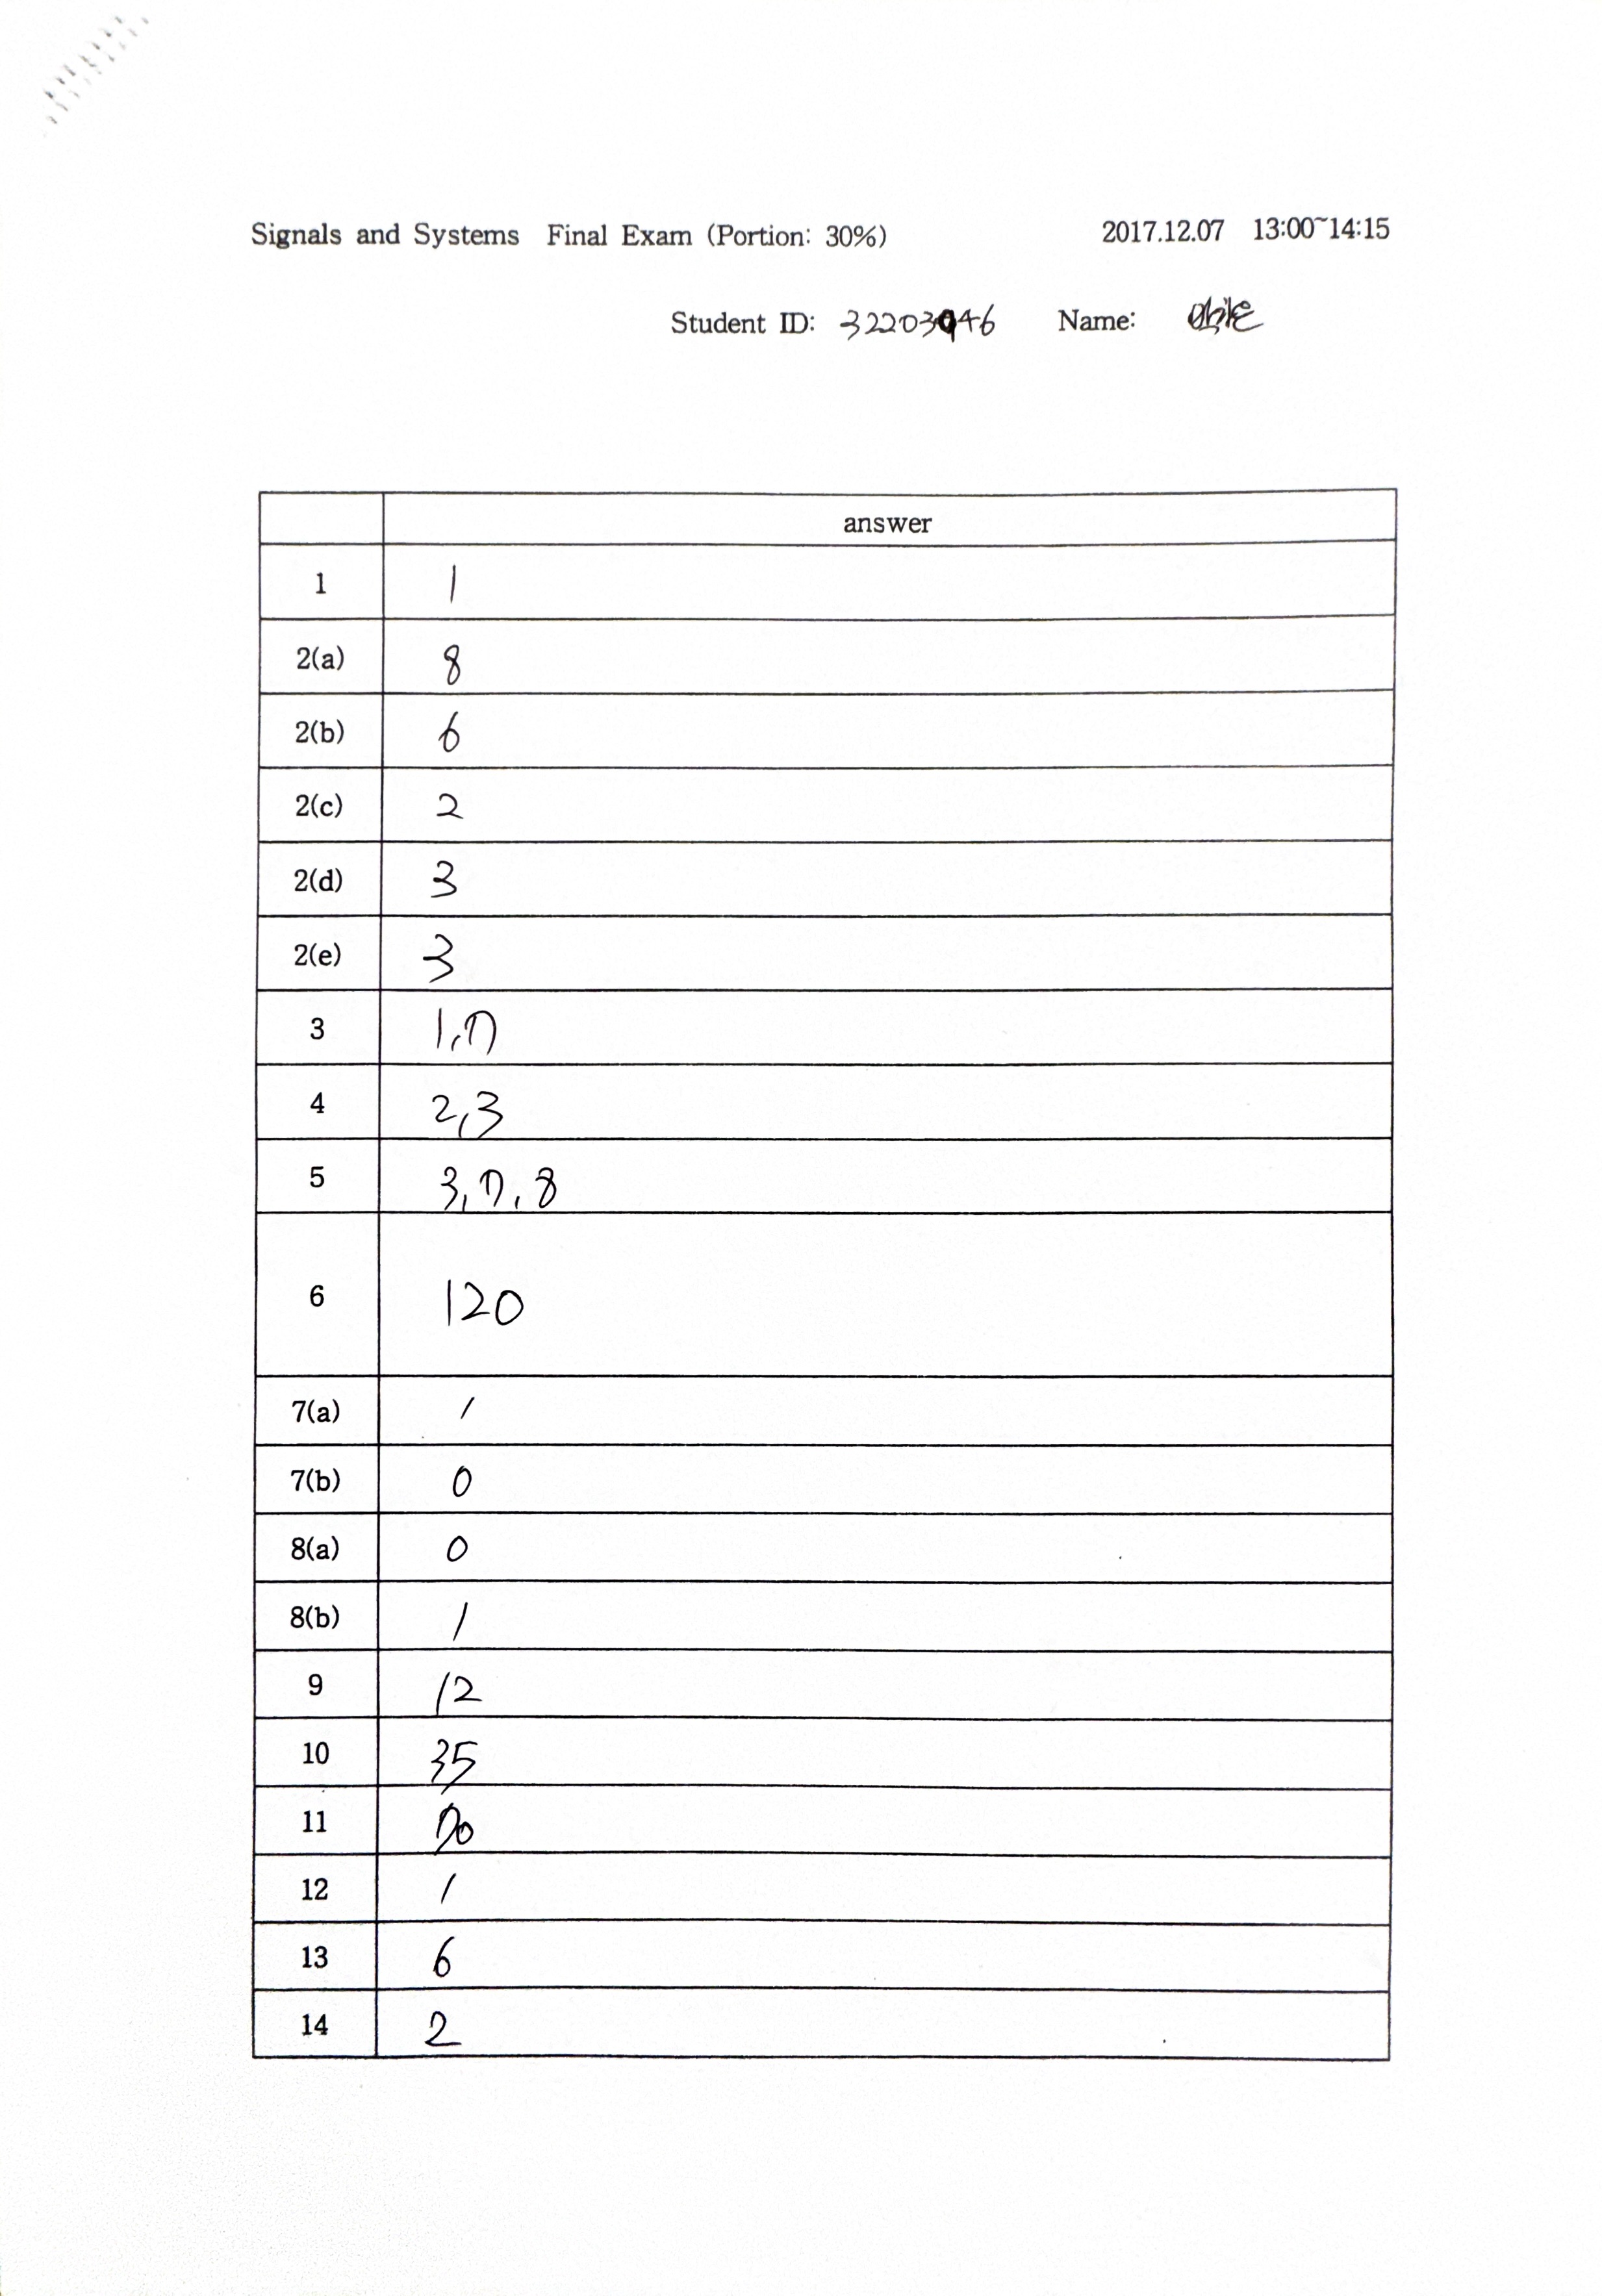 Signals and Systems Final Exam (Portion: 30%) 2017.12.07 13:00~14:15
Student ID: 32203946 Name:
answer
1 1
2(a) 8
2(b) 6
2(c) 2
2(d) 3
2(e) 3
3 1,7
4 2,3
5 3,7,8
6 120
7(a) 1
7(b) 0
8(a) 0
8(b) 1
9 12
10 35
11 70
12 1
13 6
14 2